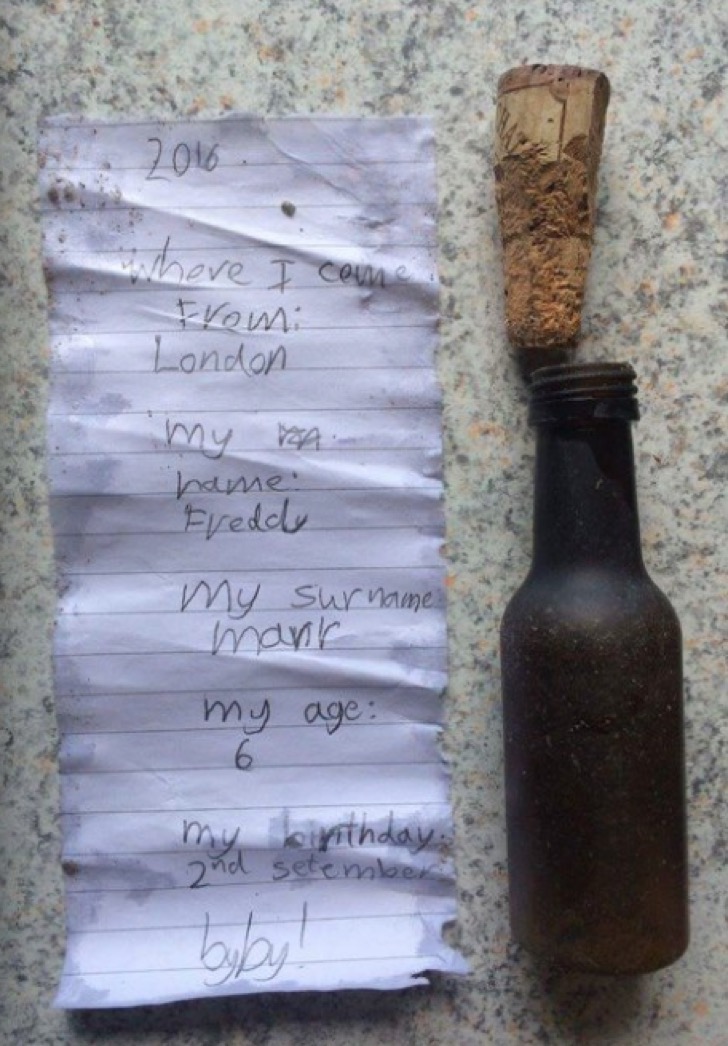 2016
where I come
From:
London
my
name:
Freddy
My surname
manr
my age:
6
my birithday:
2nd setember
byby!